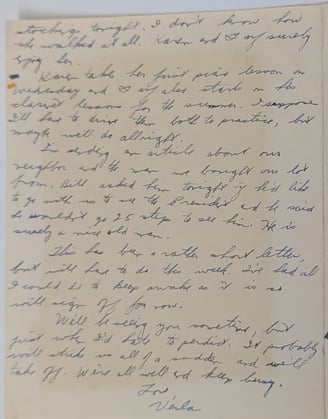 stockings tonight. I don't know how
she walked at all. Karen and I surely
enjoy her.
Karen takes her first piano lesson on
Wednesday and also starts on his
clarinet lessons for the summer. I suppose
I'll have to drive them both to practice, but
maybe we'll do allright.
I'm sending an article about our
neighbor and the man we bought our lot
from. Bill asked him tonight if he'd like
to go with us to see the President and he said
he wouldn't go 25 steps to see him. He is
surely a nice old man.
This has been a rather short letter,
but will have to do this week. I've had all
I could do to keep awake as it is so
will sign off for now.
We'll be seeing you sometime, but
just when I'd hate to perdict. It probably
will strike us all of a sudden and we'll
take off. We're all well and keep busy.
Love
Verla